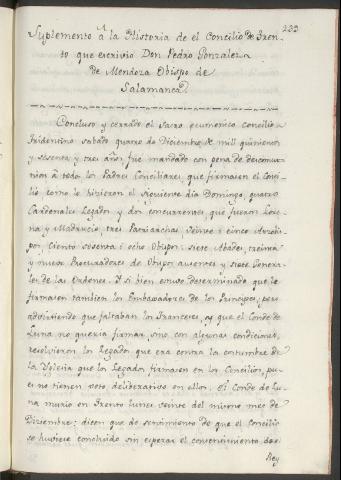 233
Suplemento â la Historia de el Concilio de Tren-
to que escrivio Don Pedro Gonzalez
de Mendoza Obispo de
Salamanca
Concluso y cerrado el Sacro ecumenico Concilio
Tridentino sabado quatro de Diciembre de mil quinientos
y sesenta y tres años fue mandado con pena de descomu-
nion â todos los Padres Conciliares, que firmasen el Conci-
lio como lo hizieron el siguiente dia Domingo, quatro
Cardenales Legados y dos concurrentes que fueron Lore-
na y Madrucio, tres Patriarchas, Veinte i cinco Arzobis-
pos, Ciento sesenta i ocho Obispos: siete Abades, treinta
y nueve Procuradores de Obispos ausentes y siete Genera-
les de las Ordenes. Y si bien estuvo determinado que lo
firmasen tambien los Embaxadores de los Principes, pero
advirtiendo que faltaban los Franceses, y que el Conde de
Luna no queria firmar sino con algunas condiciones,
resolvieron los Legados que era contra la costumbre de
la Yglesia que los Legados firmasen en los Concilios, pu-
es no tienen voto deliberativo en ellos. El Conde de Lu-
na murio en Trento lunes veinte del mismo mes de
Diziembre: dicen que de sentimiento de que el Concilio
se huviese concluido sin esperar el consentimiento del
Rey